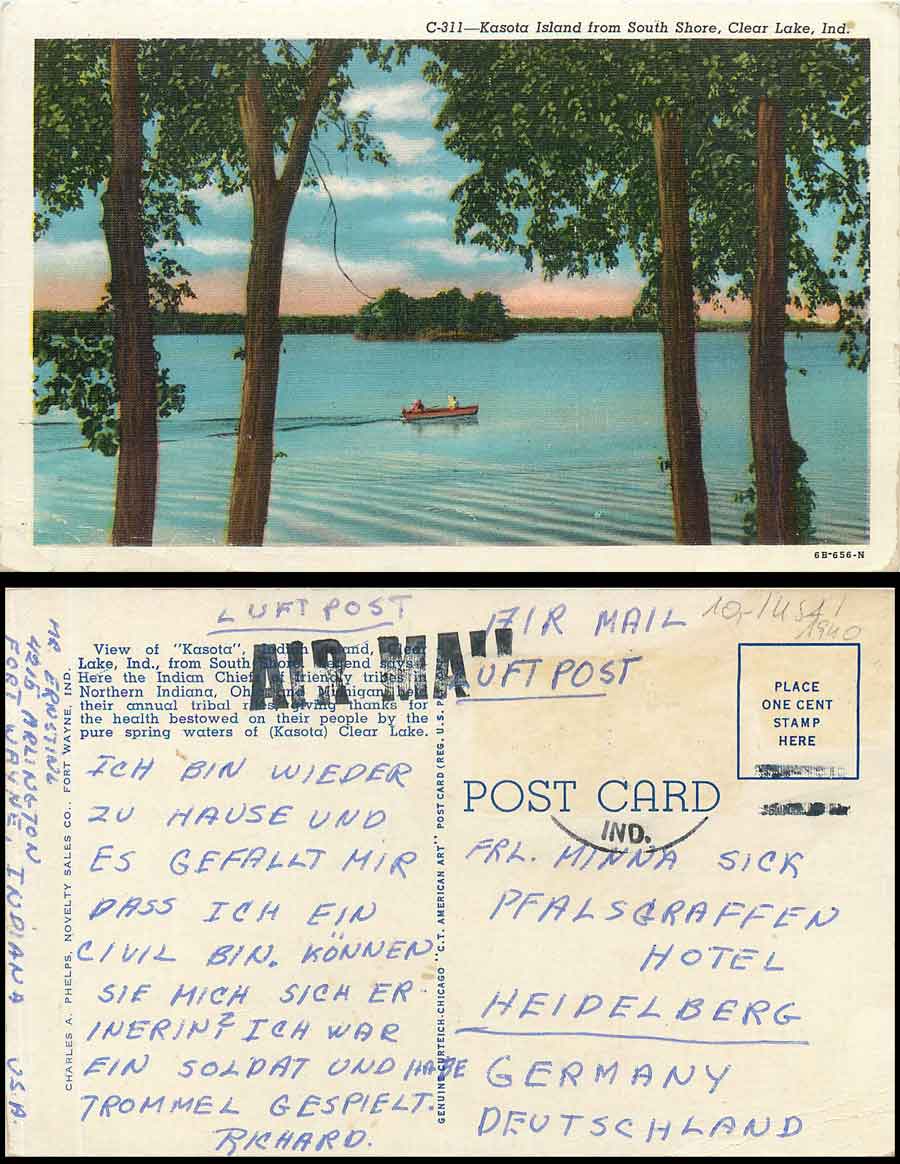 C-311—Kasota Island from South Shore, Clear Lake, Ind.
6B-656-N
LUFT POST
AIR MAIL
LUFT POST
1940
AIR MAIL
View of "Kasota", Indian Island, Clear
Lake, Ind., from South Shore. Legend says:
Here the Indian Chiefs friendly tribes in
Northern Indiana, Ohio and Michigan held
their annual tribal giving thanks for
the health bestowed on their people by the
pure spring waters of (Kasota) Clear Lake.
PLACE
ONE CENT
STAMP
HERE
POST CARD
IND.
ICH BIN WIEDER
ZU HAUSE UND
ES GEFALLT MIR
DASS ICH EIN
CIVIL BIN. KÖNNEN
SIE MICH SICH ER-
INERIN? ICH WAR
EIN SOLDAT UND HABE
TROMMEL GESPIELT.
RICHARD.
FRL. MINNA SICK
PFALSGRAFFEN
HOTEL
HEIDELBERG
GERMANY
DEUTSCHLAND
GENUINE CURTEICH-CHICAGO "C.T. AMERICAN ART" POST CARD (REG. U.S. PAT. OFF.)
CHARLES A. PHELPS, NOVELTY SALES CO., FORT WAYNE, IND.
MR
4215 ARLINGTON
FORT WAYNE, INDIANA U.S.A.